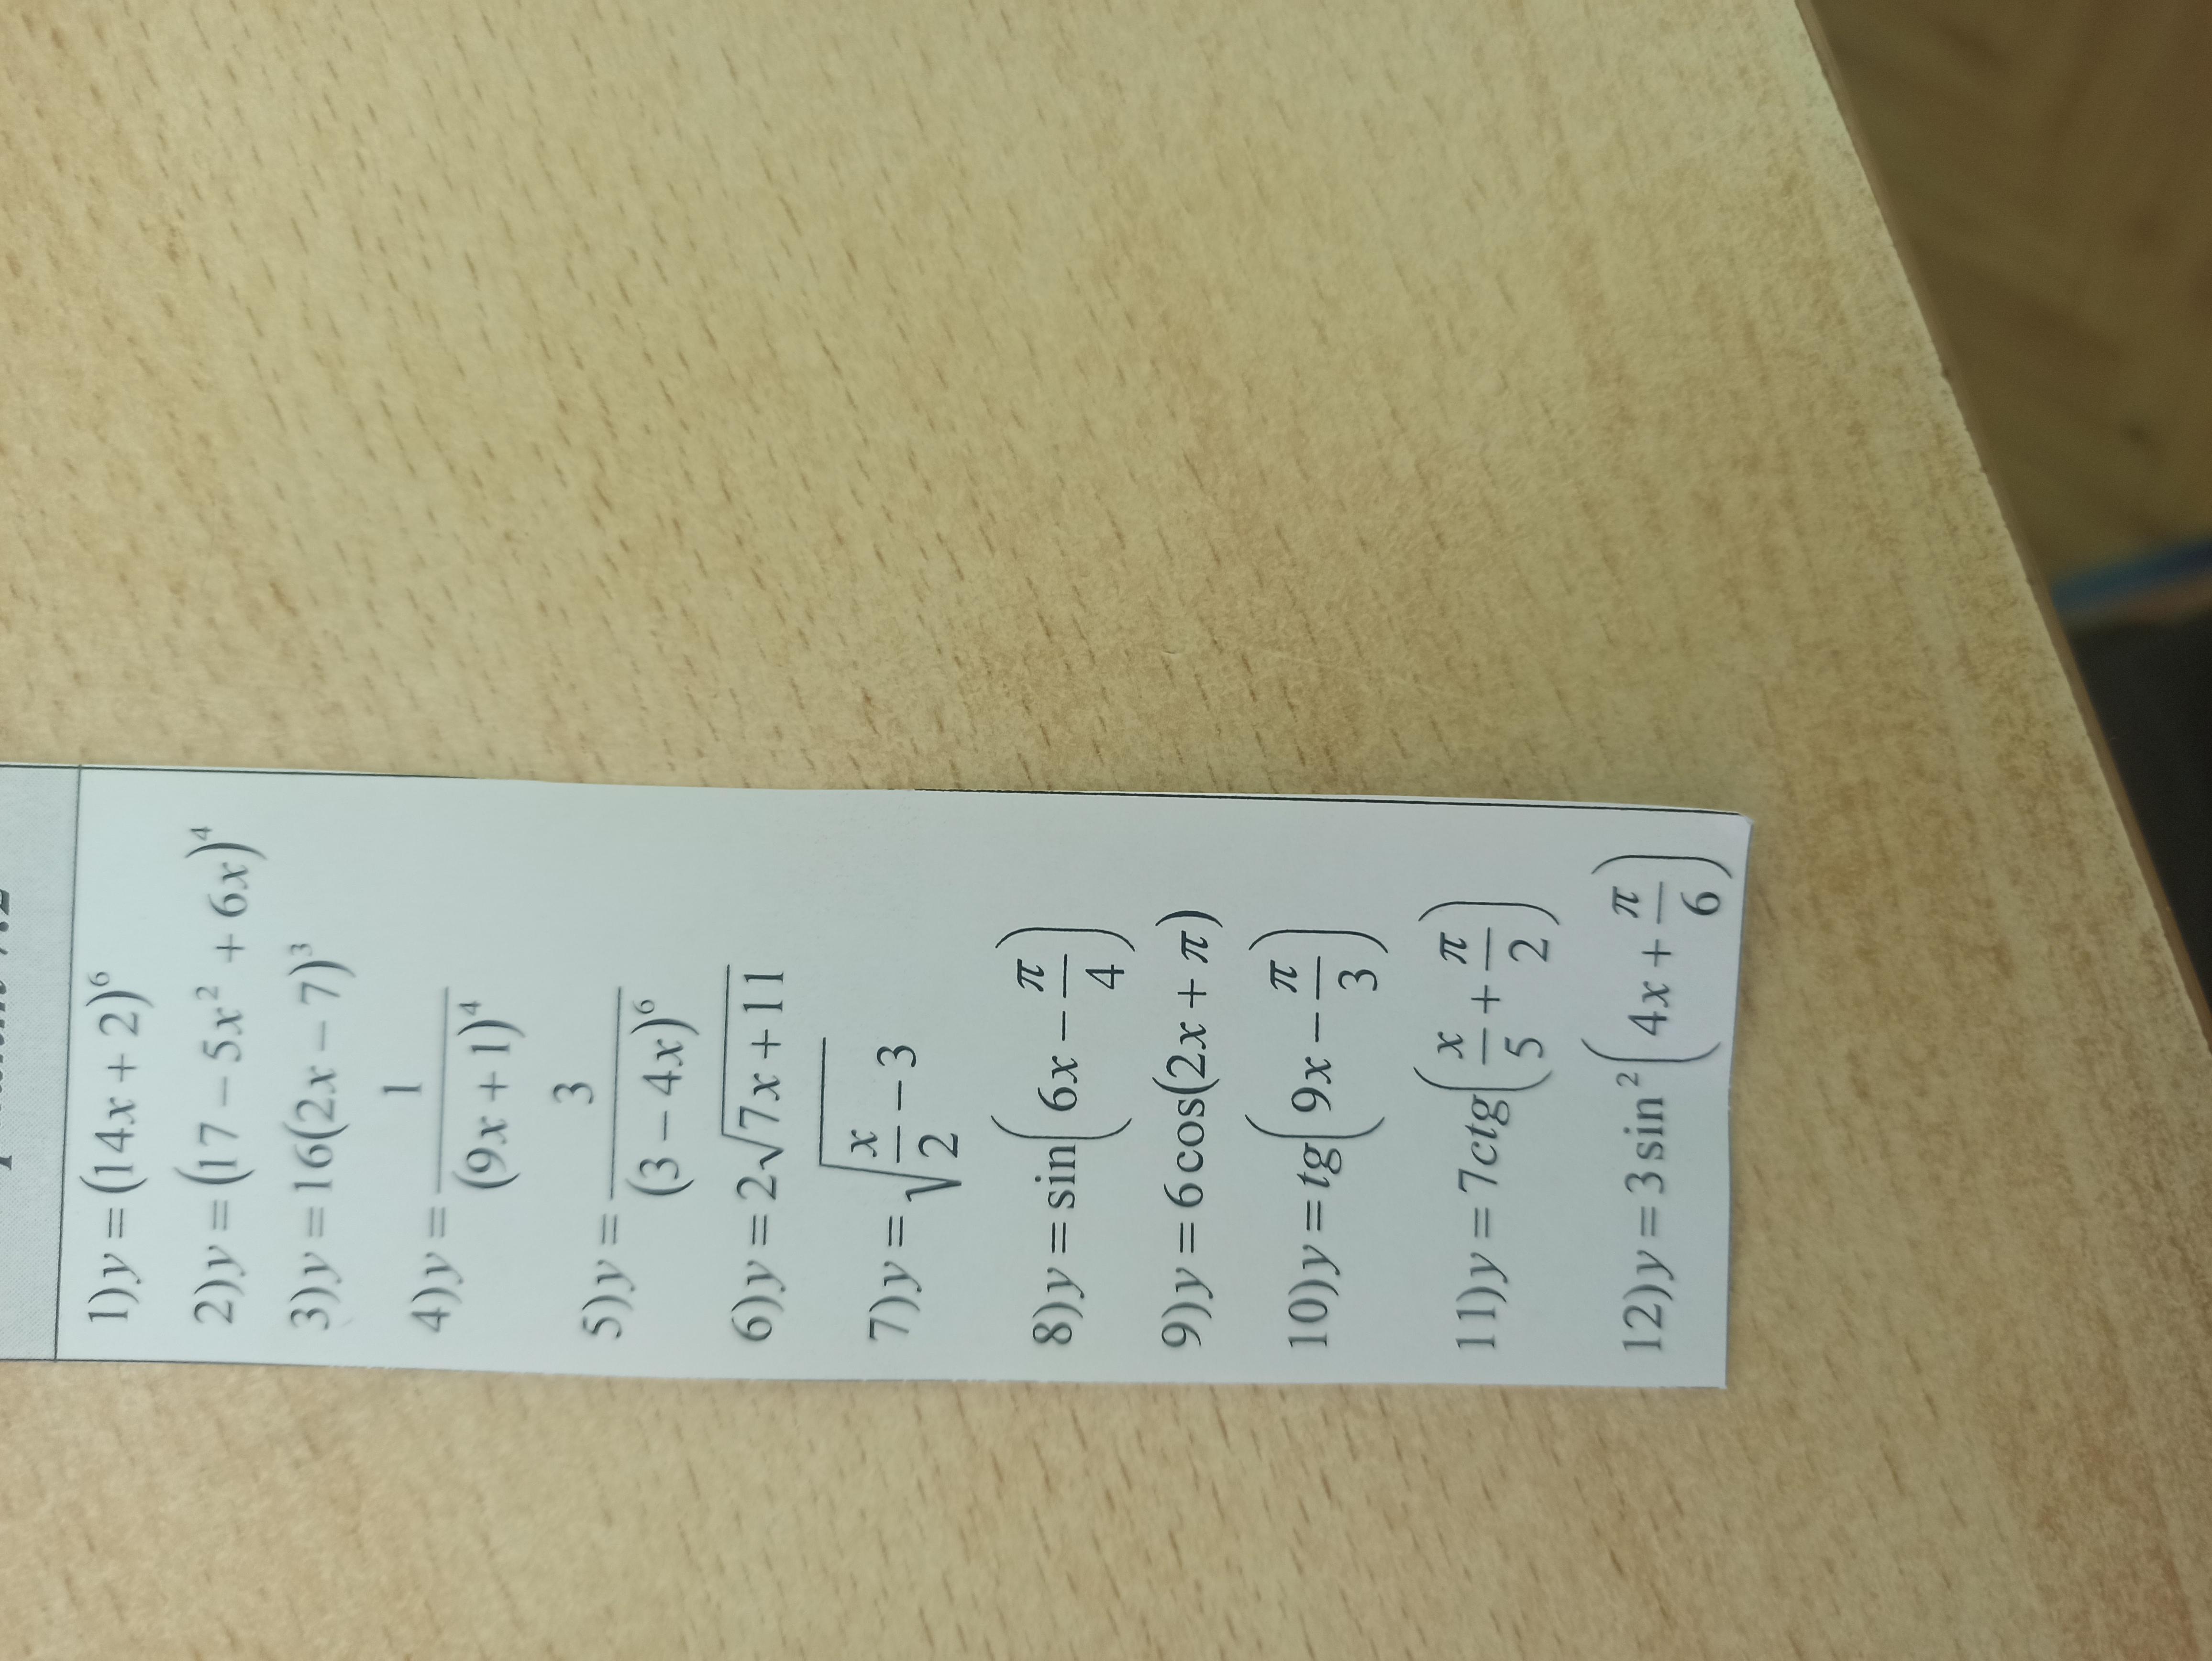 1) y = (14x + 2)⁶
2) y = (17 − 5x² + 6x)⁴
3) y = 16(2x − 7)³
4) y = 1/(9x + 1)⁴
5) y = 3/(3 − 4x)⁶
6) y = 2√(7x + 11)
7) y = √(x/2 − 3)
8) y = sin(6x − π/4)
9) y = 6 cos(2x + π)
10) y = tg(9x − π/3)
11) y = 7ctg(x/5 + π/2)
12) y = 3 sin²(4x + π/6)